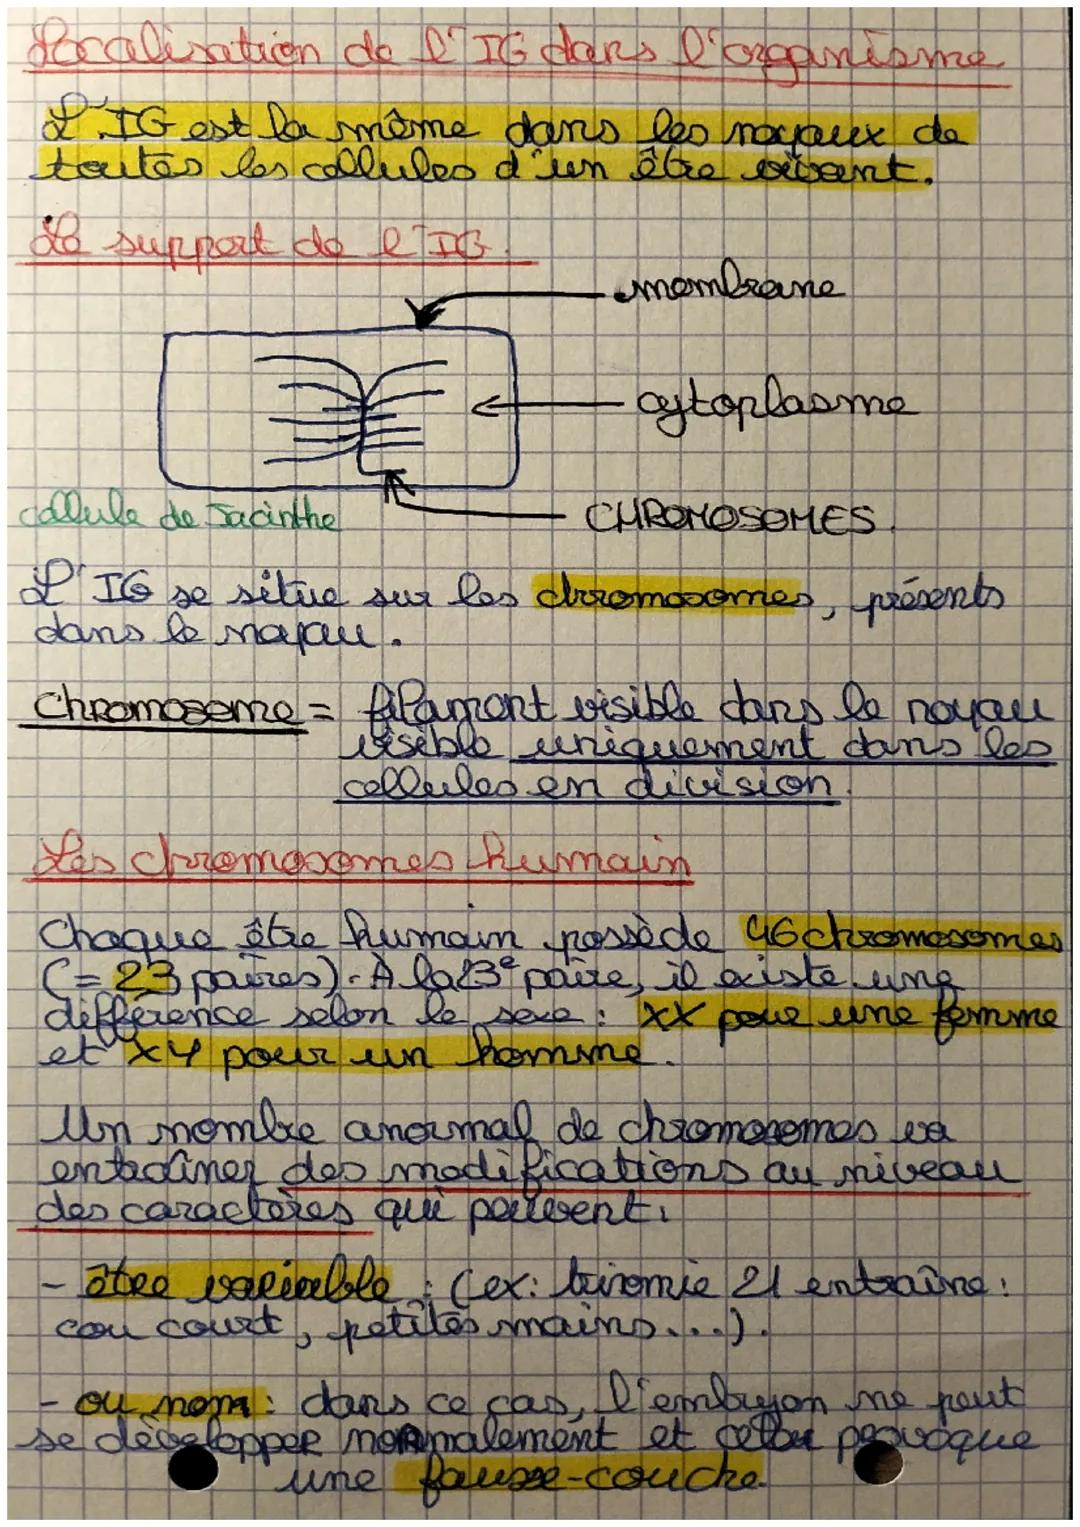 Localisation de l'IG dans l'organisme
L'IG est la même dans les noyaux de
toutes les cellules d'un être vivant.
Le support de l'IG.
membrane
cytoplasme
cellule de Jacinthe
CHROMOSOMES.
L'IG se situe sur les chromosomes, présents
dans le noyau.
Chromosome = filament visible dans le noyau
visible uniquement dans les
cellules en division.
Les chromosomes humain
Chaque être humain possède 46 chromosomes
(= 23 paires). À la 23e paire, il existe une
différence selon le sexe : XX pour une femme
et XY pour un homme.
Un nombre anormal de chromosomes va
entraîner des modifications au niveau
des caractères qui peuvent:
- être variable : (ex: trisomie 21 entraîne:
cou court, petites mains...).
- ou non : dans ce cas, l'embryon ne peut
se développer normalement et cela provoque
une fausse-couche.